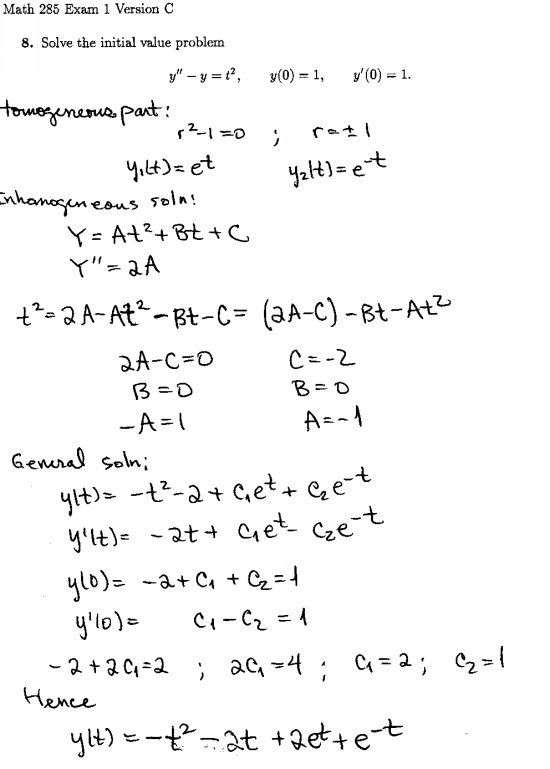 Math 285 Exam 1 Version C
8. Solve the initial value problem
y'' − y = t², y(0) = 1, y'(0) = 1.
Homogeneous part:
r²-1=0 ; r=±1
y₁(t)=e^t y₂(t)=e^-t
Inhomogeneous soln:
Y = At²+Bt+C
Y''=2A
t²=2A-At²-Bt-C= (2A-C)-Bt-At²
2A-C=0 C=-2
B=0 B=0
-A=1 A=-1
General soln;
y(t)= -t²-2+ C₁e^t+ C₂e^-t
y'(t)= -2t+ C₁e^t- C₂e^-t
y(0)= -2+C₁ +C₂=1
y'(0)= C₁-C₂ = 1
-2+2C₁=2 ; 2C₁=4 ; C₁=2; C₂=1
Hence
y(t) = -t²-2t +2e^t+e^-t